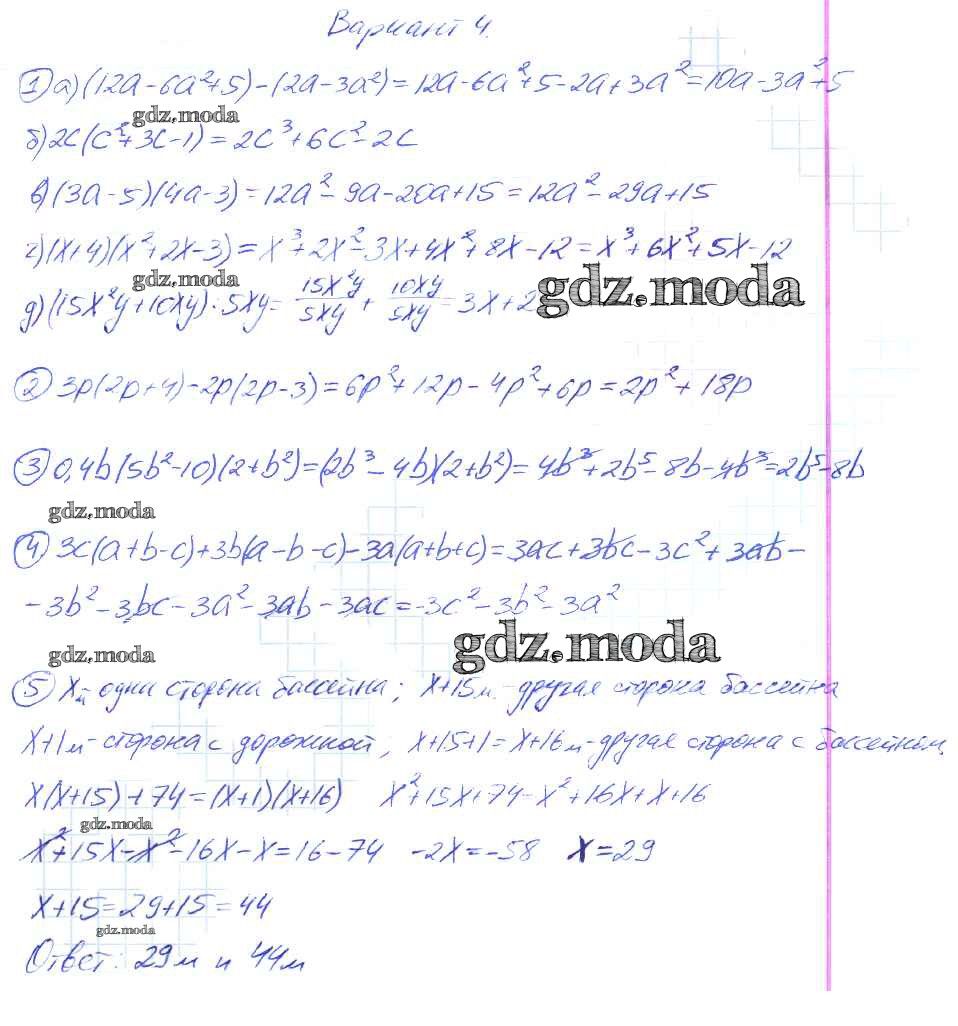 Вариант 4.
① а) (12a-6a²+5)-(2a-3a²)=12a-6a²+5-2a+3a²=10a-3a²+5
gdz.moda
б) 2c(c²+3c-1)=2c³+6c²-2c
в) (3a-5)(4a-3)=12a²-9a-20a+15=12a²-29a+15
г) (x+4)(x²+2x-3)=x³+2x²-3x+4x²+8x-12=x³+6x²+5x-12
gdz.moda
gdz.moda
д) (15x²y+10xy):5xy=15x²y/5xy+10xy/5xy=3x+2
② 3p(2p+4)-2p(2p-3)=6p²+12p-4p²+6p=2p²+18p
③ 0,4b(5b²-10)(2+b²)=(2b³-4b)(2+b²)=4b³+2b⁵-8b-4b³=2b⁵-8b
gdz.moda
④ 3c(a+b-c)+3b(a-b-c)-3a(a+b+c)=3ac+3bc-3c²+3ab-
-3b²-3bc-3a²-3ab-3ac=-3c²-3b²-3a²
gdz.moda
gdz.moda
⑤ x м- одна сторона бассейна; x+15м.-другая сторона бассейна
x+1м-сторона с дорожкой; x+15+1=x+16м-другая сторона с бассейном
x(x+15)+74=(x+1)(x+16) x²+15x+74=x²+16x+x+16
gdz.moda
x²+15x-x²-16x-x=16-74 -2x=-58 x=29
x+15=29+15=44
gdz.moda
Ответ: 29м и 44м